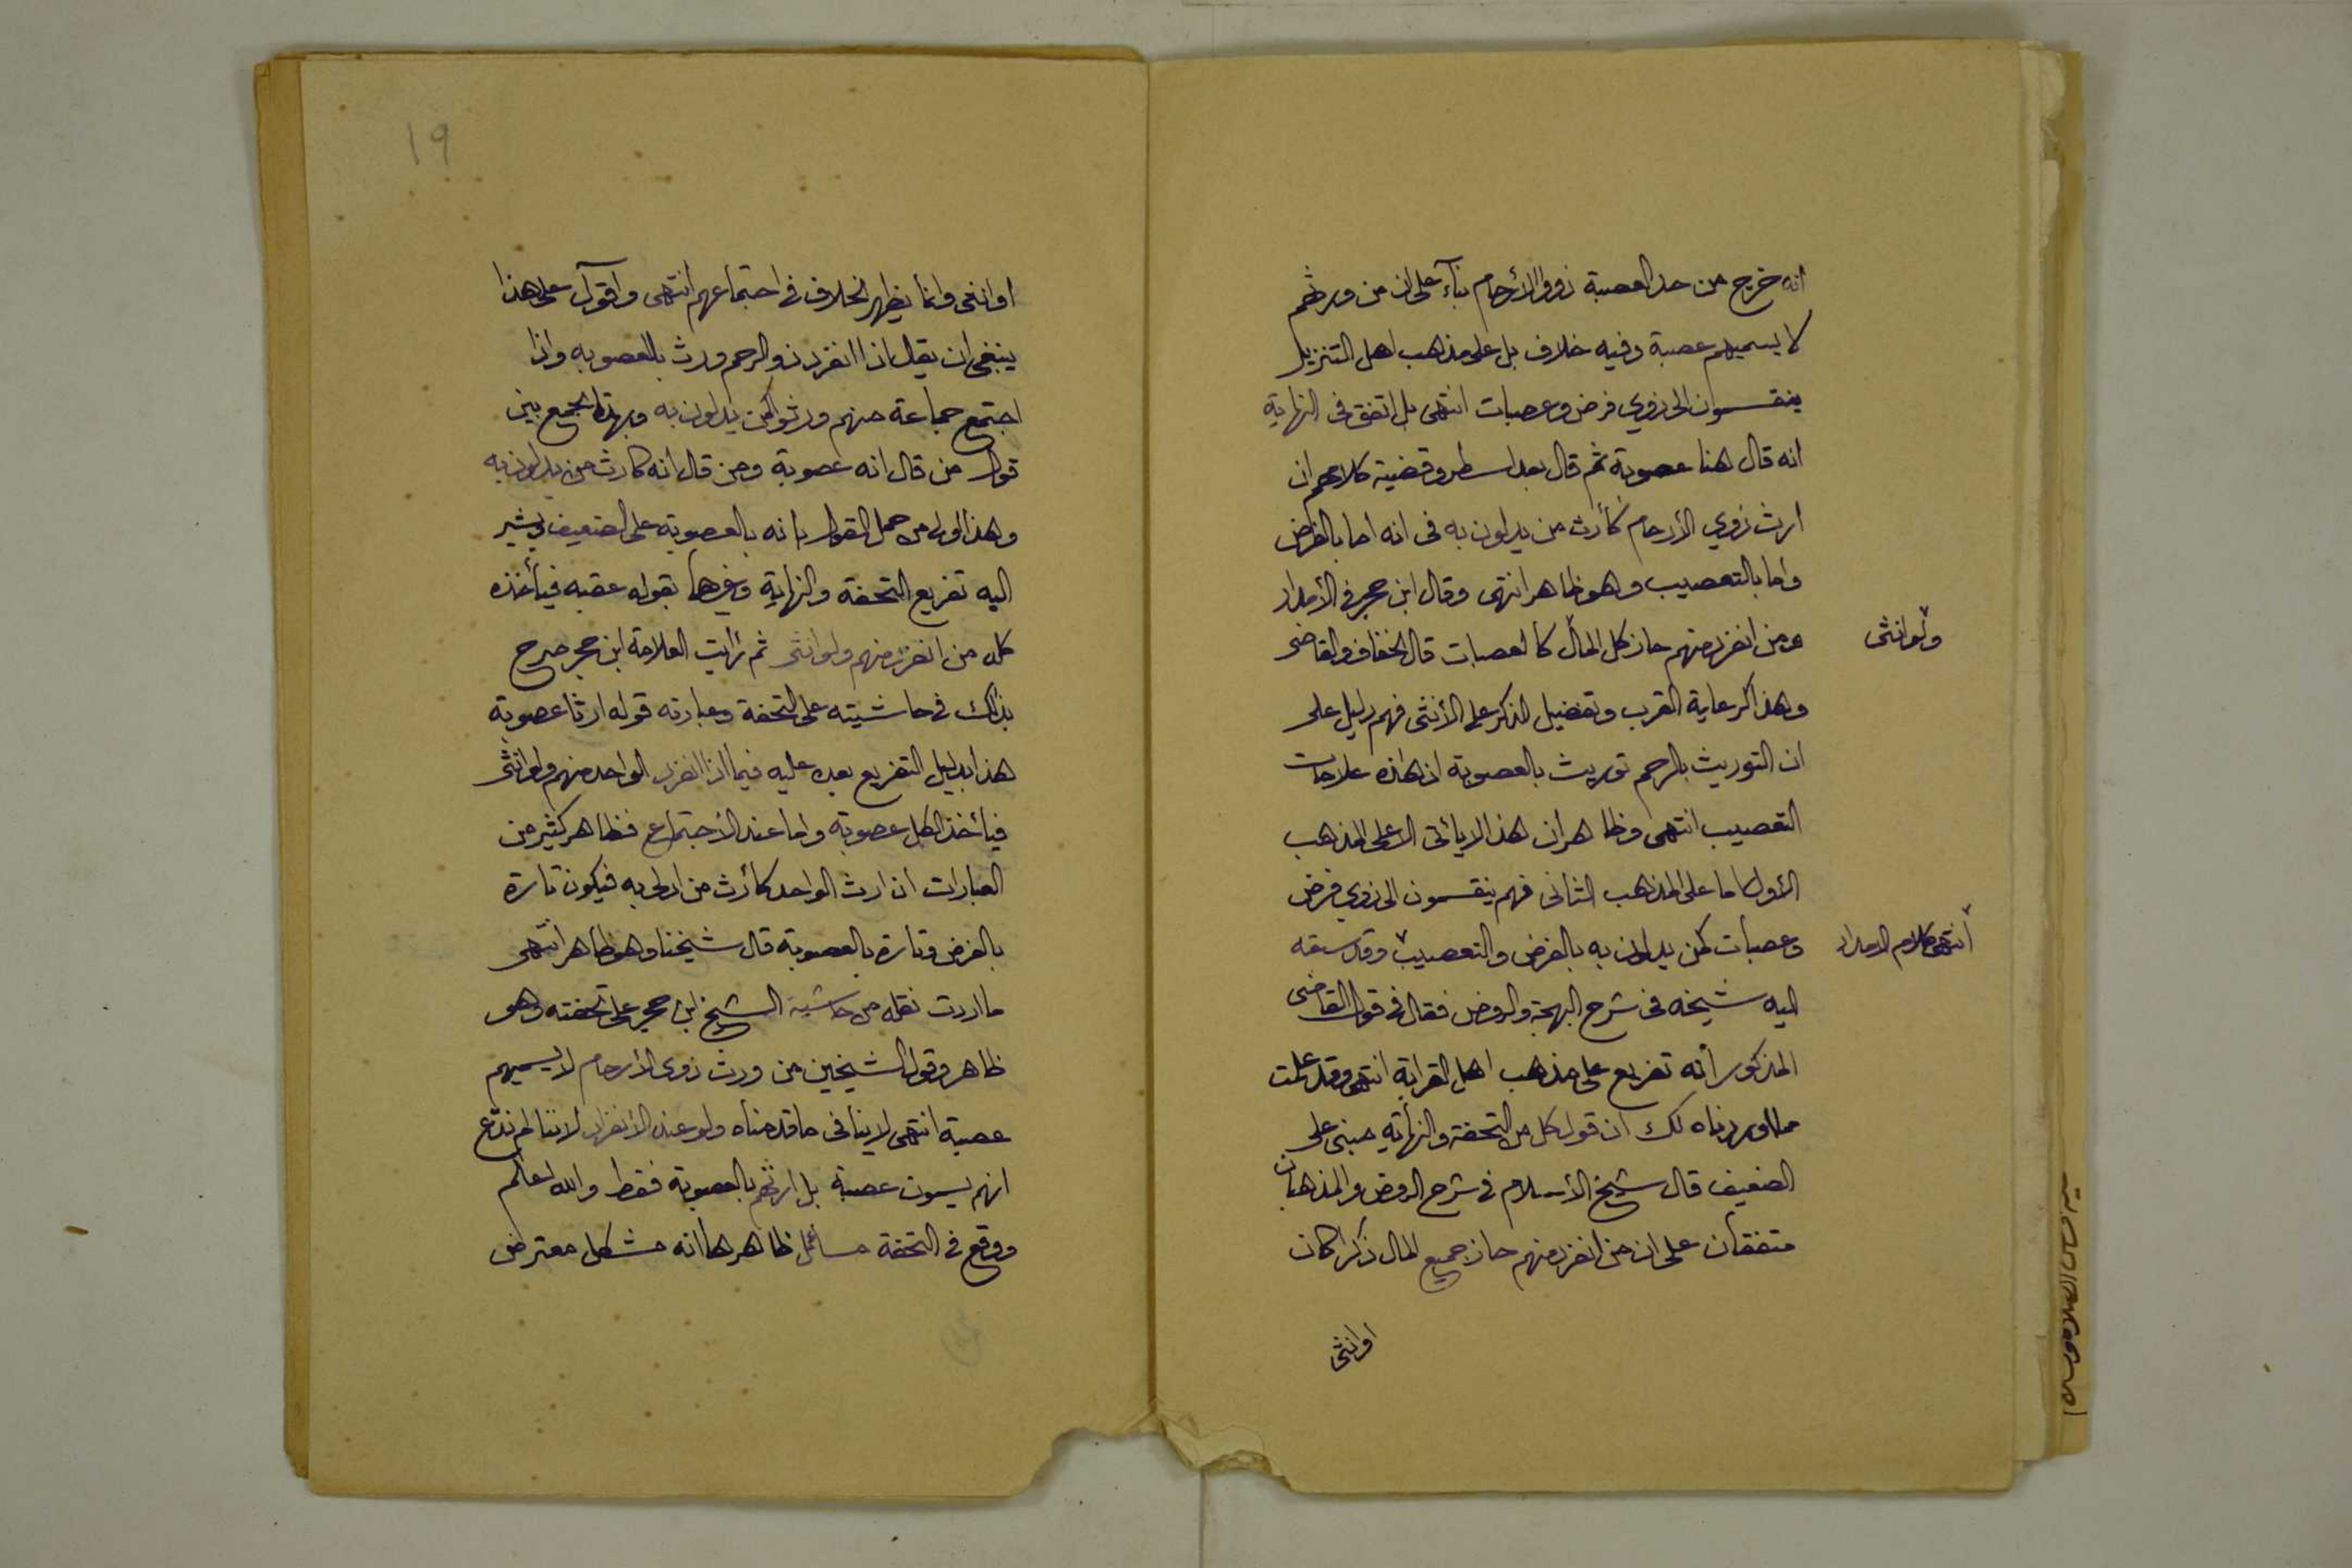 انه خرج من حد العصبة ذووا الأرحام بنآء على ان من ورثهم
لا يسميهم عصبة وفيه خلاف بل على مذهب اهل التنزيل
ينقسمون الى ذوي فرض وعصبات انتهى بل اتفق فى النهاية
انه قال هنا عصوبة ثم قال بعد اسطر وقضية كلامهم ان
ارث ذوي الأرحام كأرث من يدلون به فى انه اما بالفرض
واما بالتعصيب وهو ظاهر انتهى وقال ابن حجر فى الأمداد
ومن انفرد منهم حاز كل المال كالعصبات قال الخفاف والقاضى
ولو انثى
وهذا كرعاية القرب وتفضيل الذكر على الأنثى فهم دليل على
ان التوريث بالرحم توريث بالعصوبة اذ هذه علامات
التعصيب انتهى وظاهر ان هذا لا يأتى الا على المذهب
الأول اما على المذهب الثانى فهم ينقسمون الى ذوي فرض
وعصبات كمن يدلون به بالفرض والتعصيب وقد سبقه
انتهى كلام الامداد
اليه شيخه فى شرح البهجة والروض فقال فى قول القاضى
المذكور انه تفريع على مذهب اهل القرابة انتهى وقد علمت
مما اوردناه لك ان قول كل من التحفة والنهاية مبنى على
الضعيف قال شيخ الأسلام فى شرح الروض والمذهبان
متفقان على ان من انفرد منهم حاز جميع المال ذكرا كان
او انثى
١٩
او انثى وانما يظهر الخلاف فى اجتماعهم انتهى واقول على هذا
ينبغى ان يقال اذا انفرد ذو الرحم ورث بالعصوبه واذا
اجتمع جماعة منهم ورثوا كمن يدلون به وبهذا يجمع بين
قول من قال انه عصوبة ومن قال انه كارث من يدلون به
وهذا اولى من حمل القول بانه بالعصوبة على الضعيف ويشير
اليه تفريع التحفة والنهاية وغيرها بقوله عقبه فيأخذه
كله من انفرد منهم ولو انثى ثم رأيت العلامة ابن حجر صرح
بذلك فى حاشيته على التحفة وعبارته قوله ارثا عصوبة
هذا بدليل التفريع بعده عليه فيما اذا انفرد الواحد منهم ولو انثى
فيأخذ الكل عصوبة واما عند الأجتماع فظاهر كثير من
العبارات ان ارث الواحد كأرث من ادلى به فيكون تارة
بالفرض وتارة بالعصوبة قال شيخنا وهو ظاهر انتهى
ما اردت نقله من حاشية الشيخ ابن حجر على تحفته وهو
ظاهر وقول الشيخين من ورث ذوى الأرحام لا يسميهم
عصبة انتهى لا ينافى ما قدمناه ولو عند الأنفراد لاننا لم ندع
انهم يسمون عصبة بل ارثهم بالعصوبة فقط والله اعلم
ووقع فى التحفة مسائل ظاهرها انه مشكل معترض